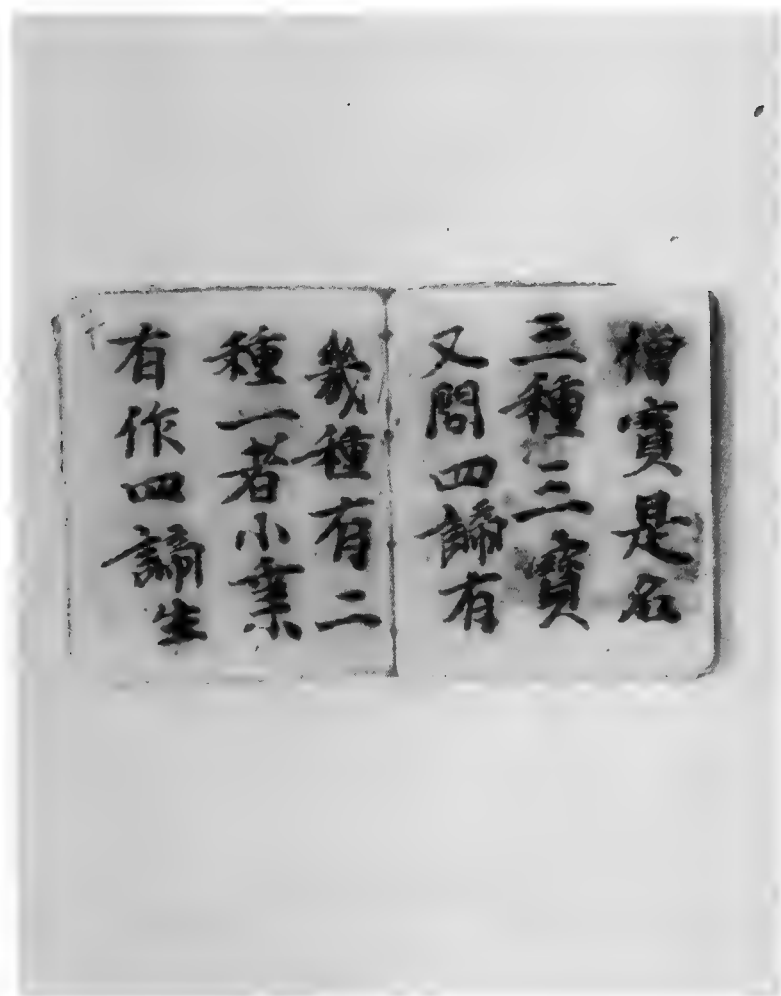 僧寳是名
三種三寳
又問四諦有
幾種有二
種一者小乗
有作四諦生